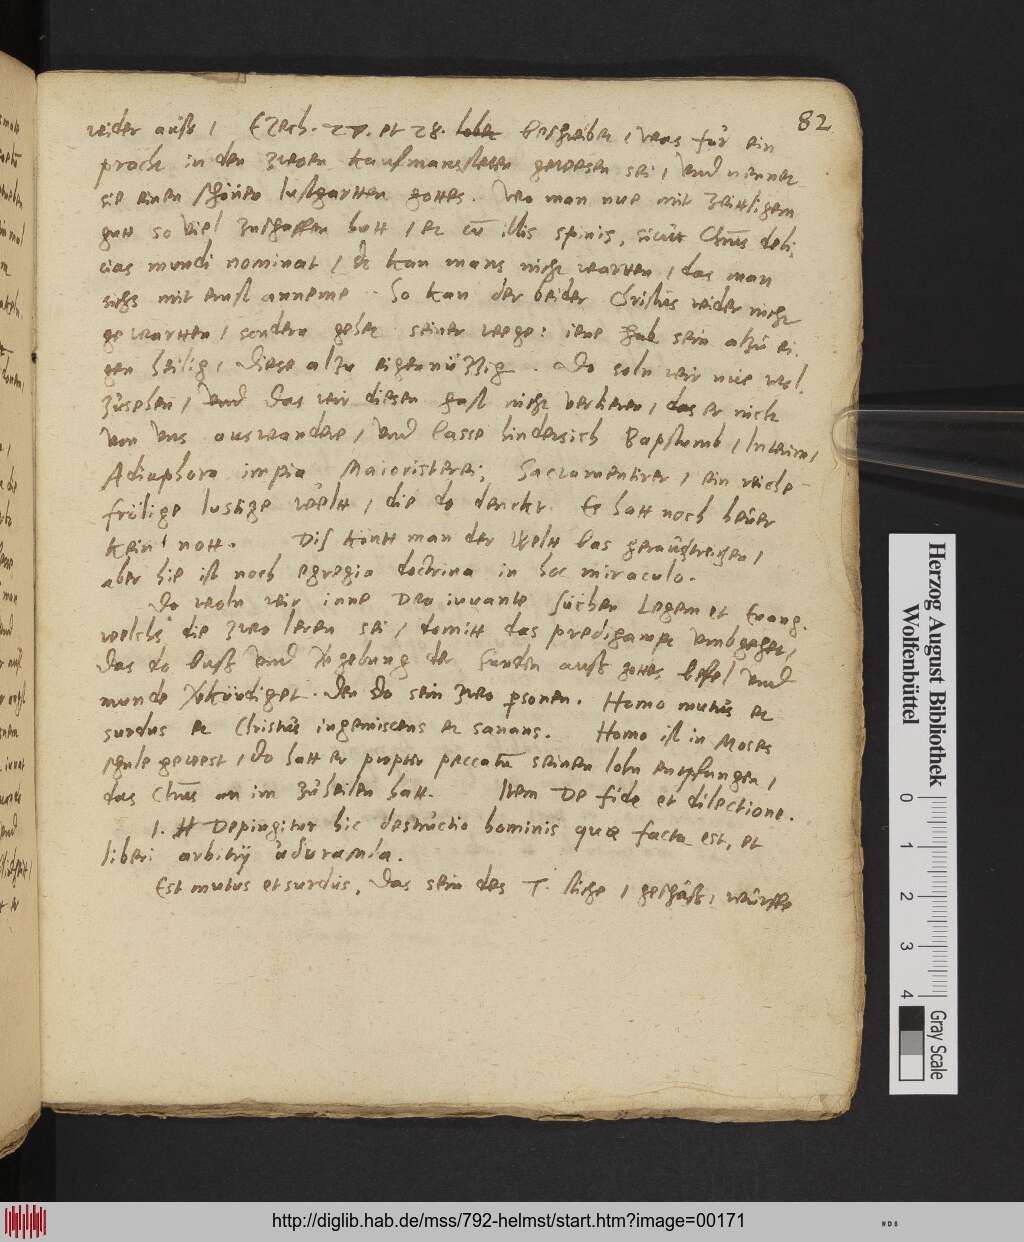 82
wider auß / Ezech. 27. et 28. beschreibet / was für ein
pracht in den zween kaufmansstetten gewesen sei / und nennet
sie einen schönen lustgartten gottes. Wo man nue mit zeittligem
gutt so viel zuschaffen hatt / et cū illis spinis, sicut Chrūs deli,
cias mundi nominat / Da kan mans nicht wartten / das man
sichs mit ernst anneme. So kan der beider Christus wider nicht
gewartten / sondern gehet seiner wege: iene hat sein alzu ei,
gen heilig, diese alzu eigennützzig. Do soln wir nue wol
zusehen / und das wir diesen gast nicht verlieren / das er nich
von uns auswandere / und lasse hindersich Bapstumb / Interim /
Adiaphora impia Maioristerei, Sacramentirer / ein reiche
frölige lustige wellt / die do denckt. Es hatt noch heuer
kein nott. Diß köntt man der Weltt bas heraußstreichen /
aber hie ist noch egregia doctrina in hoc miraculo.
Do woln wir inne Deo iuvante suchen Legem et Evang.
welchs die zwo leren sei / domitt das predigampt umbgehet,
das do buß und vergebung der sunden auß gottes befel und
munde verkündiget. Den do sein zwo personen. Homo mutus et
surdus et Christus ingemiscens et sanans. Homo ist in Moses
schule gewest / do hatt er propter peccatū seinen lohn entpfungen /
das Chrūs an im zuheilen hatt. Item De fide et dilectione.
1. Depingitur hic destructio hominis quae facta est, et
liberi arbitrij
Est mutus et surdus, das sein des T. stiche / geschäft,